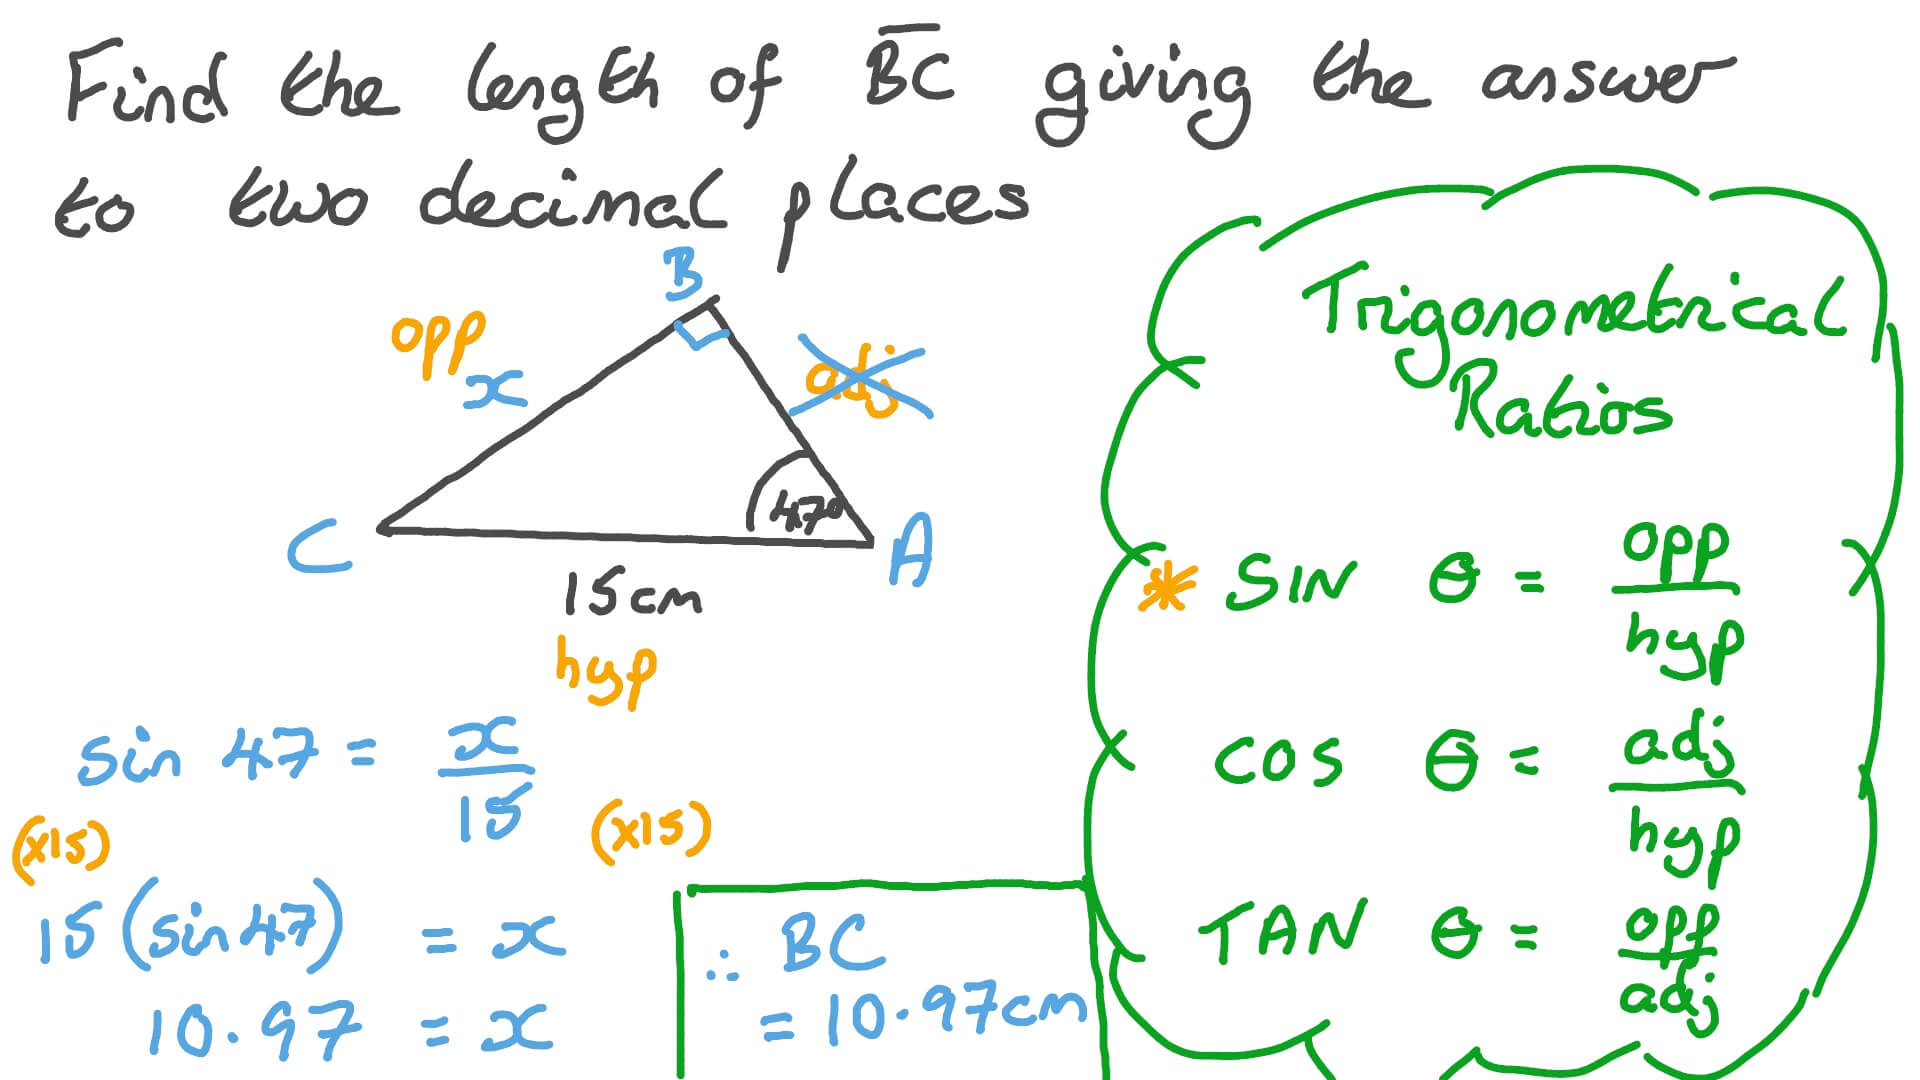 Find the length of BC giving the answer
to two decimal places
B
opp
x
adj
47°
C
A
15cm
hyp
sin 47 = x/15
(x15) (x15)
15 (sin 47) = x
10.97 = x
∴ BC
= 10.97cm
Trigonometrical
Ratios
* SIN θ = opp/hyp
COS θ = adj/hyp
TAN θ = opp/adj